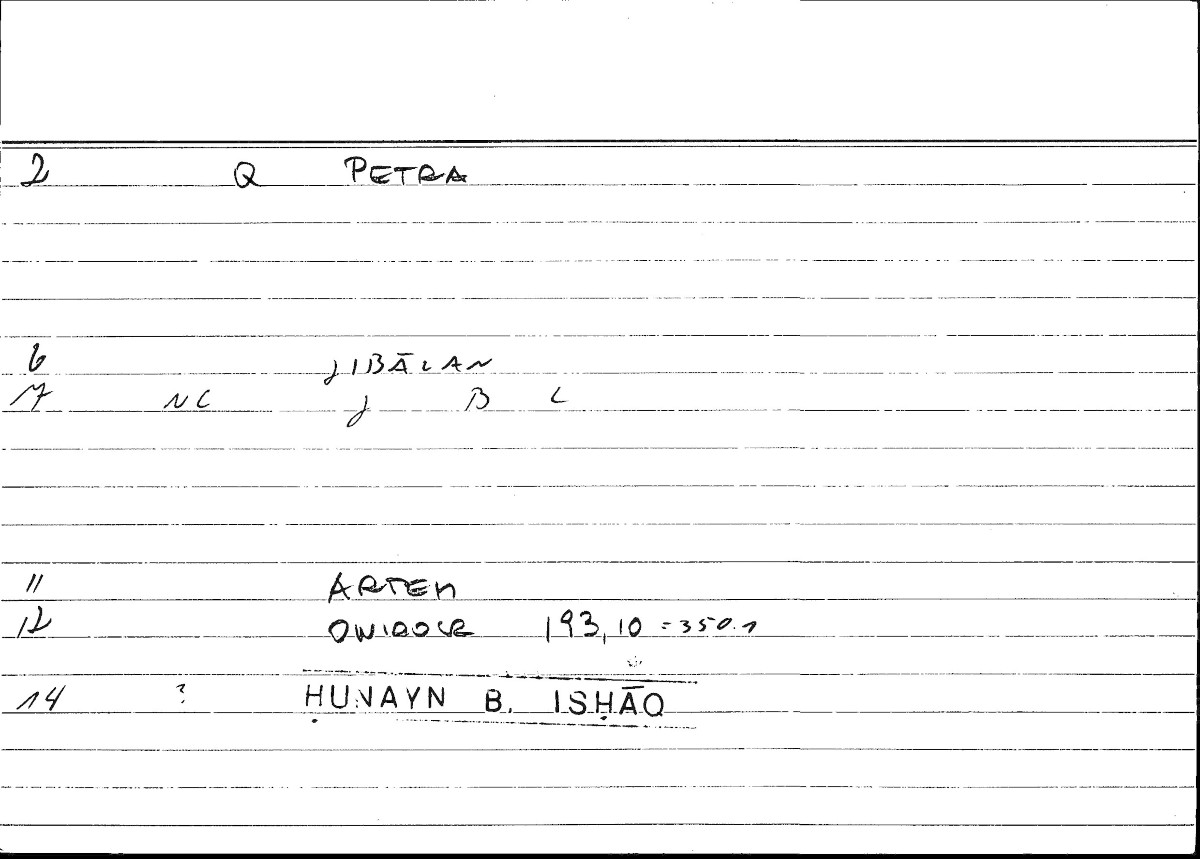 2 Q PETRA
6 JIBĀLAN
7 NC J B L
11 ARTEM
12 ONIROCR 193,10 = 350.1
14 ? ḤUNAYN B. ISḤĀQ